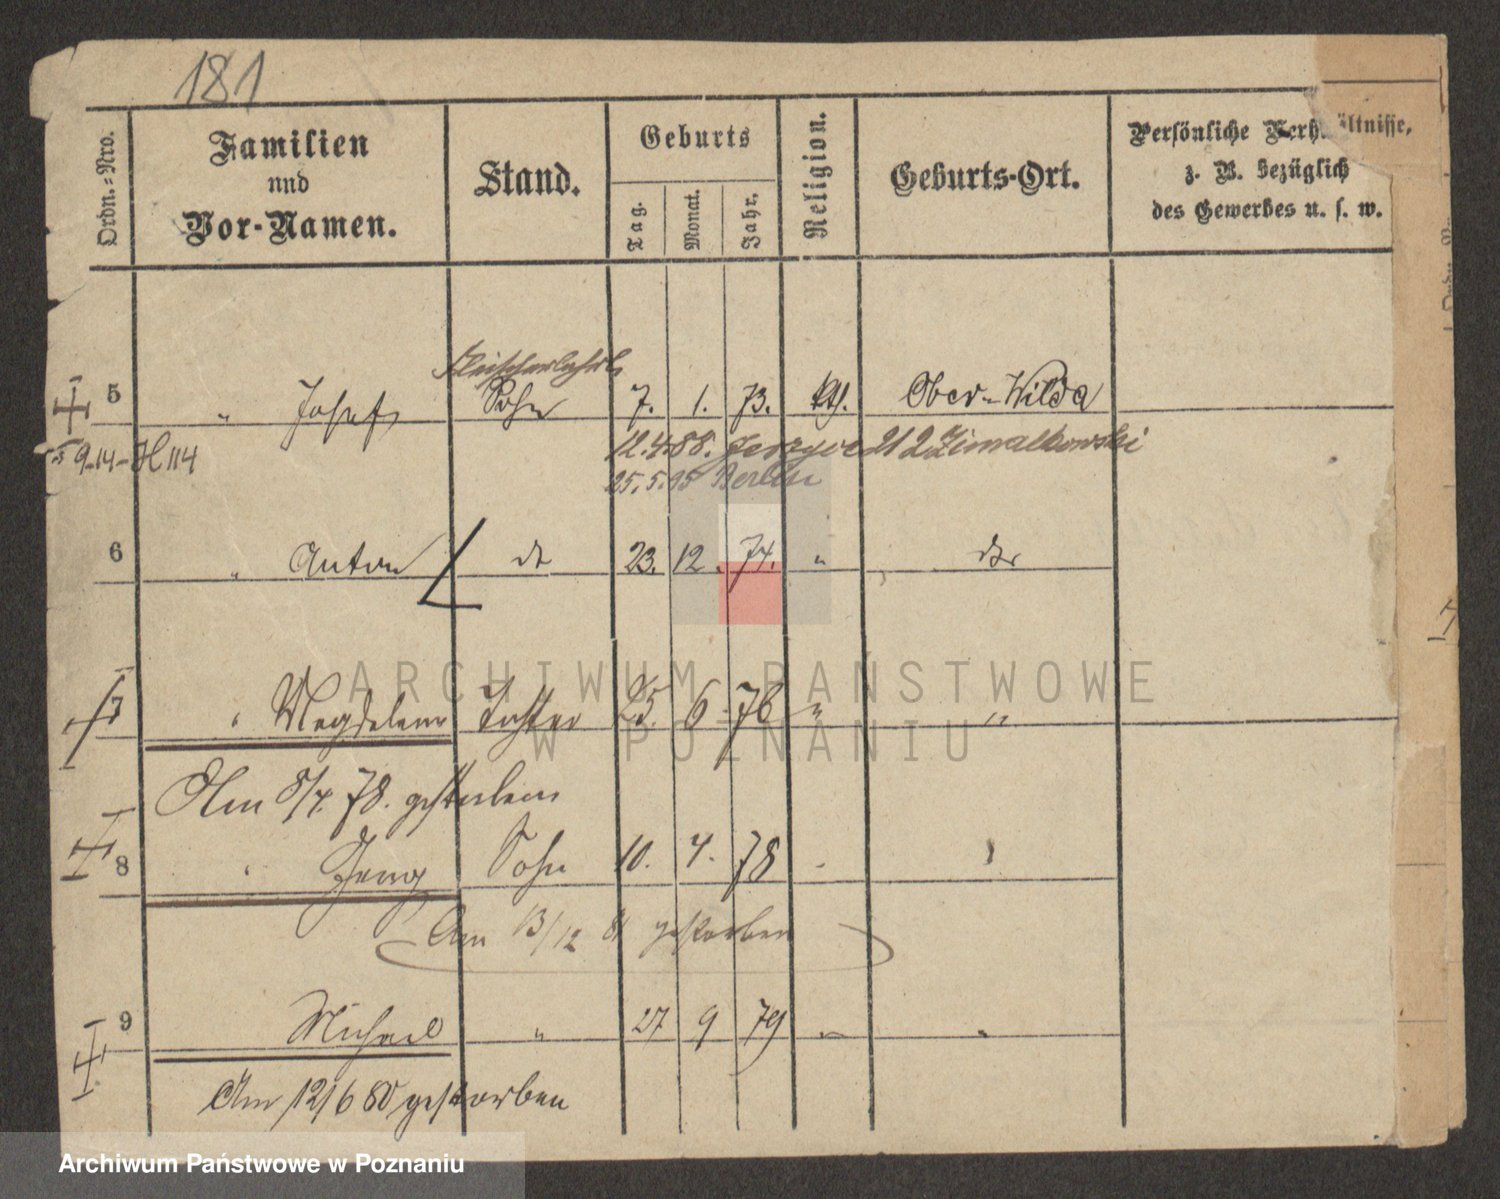 181
Ordn.-Nro.
Familien
und
Vor-Namen.
Stand.
Geburts
Tag.
Monat.
Jahr.
Religion.
Geburts-Ort.
Persönliche Verhältnisse,
z. B. bezüglich
des Gewerbes u. s. w.
Fleischerlehrl
5 " Josef Sohn 7. 1. 73. kth. Ober-Wilda
9-14-H 114
12.4.88. Jerzyce 212 Zimalkowski
25.5.95 Berlin
6 " Anton dt 23. 12. 74. " dto
7 " Magdalena Tochter 25. 6. 76 " "
Am 8/4. 78. gestorben
8 " Sohn 10. 4. 78 "
Am 13/12 81 gestorben
9 Michael " 27 9 79 " "
Am 12/6 80 gestorben
ARCHIWUM PAŃSTWOWE
W POZNANIU
Archiwum Państwowe w Poznaniu